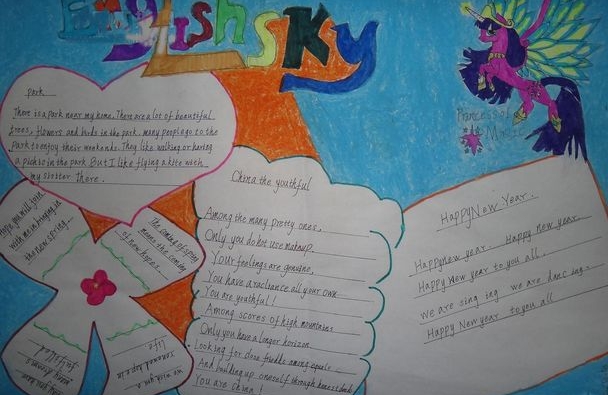 English Sky
Princess of
Magic
Park
There is a park near my home. There are a lot of beautiful
trees, flowers and birds in the park. many people go to the
park to enjoy their weekends. They like walking or having
a picnic in the park. But I like flying a kite with
my sister there.
with me in
the new spring
The coming of spring
means the coming
of new hopes.
China the youthful
Among the many pretty ones,
Only you do not use makeup.
Your feelings are genuine,
You have a radiance all your own
You are youthful!
Among scores of high mountains
Only you have a longer horizon
Looking for close friends among equals
And building up oneself through honest
You are China!
Happy New Year.
Happy new year. Happy new year.
Happy New year to you all.
we are sing ing we are danc ing.
Happy New year to you all
we wish you a
life